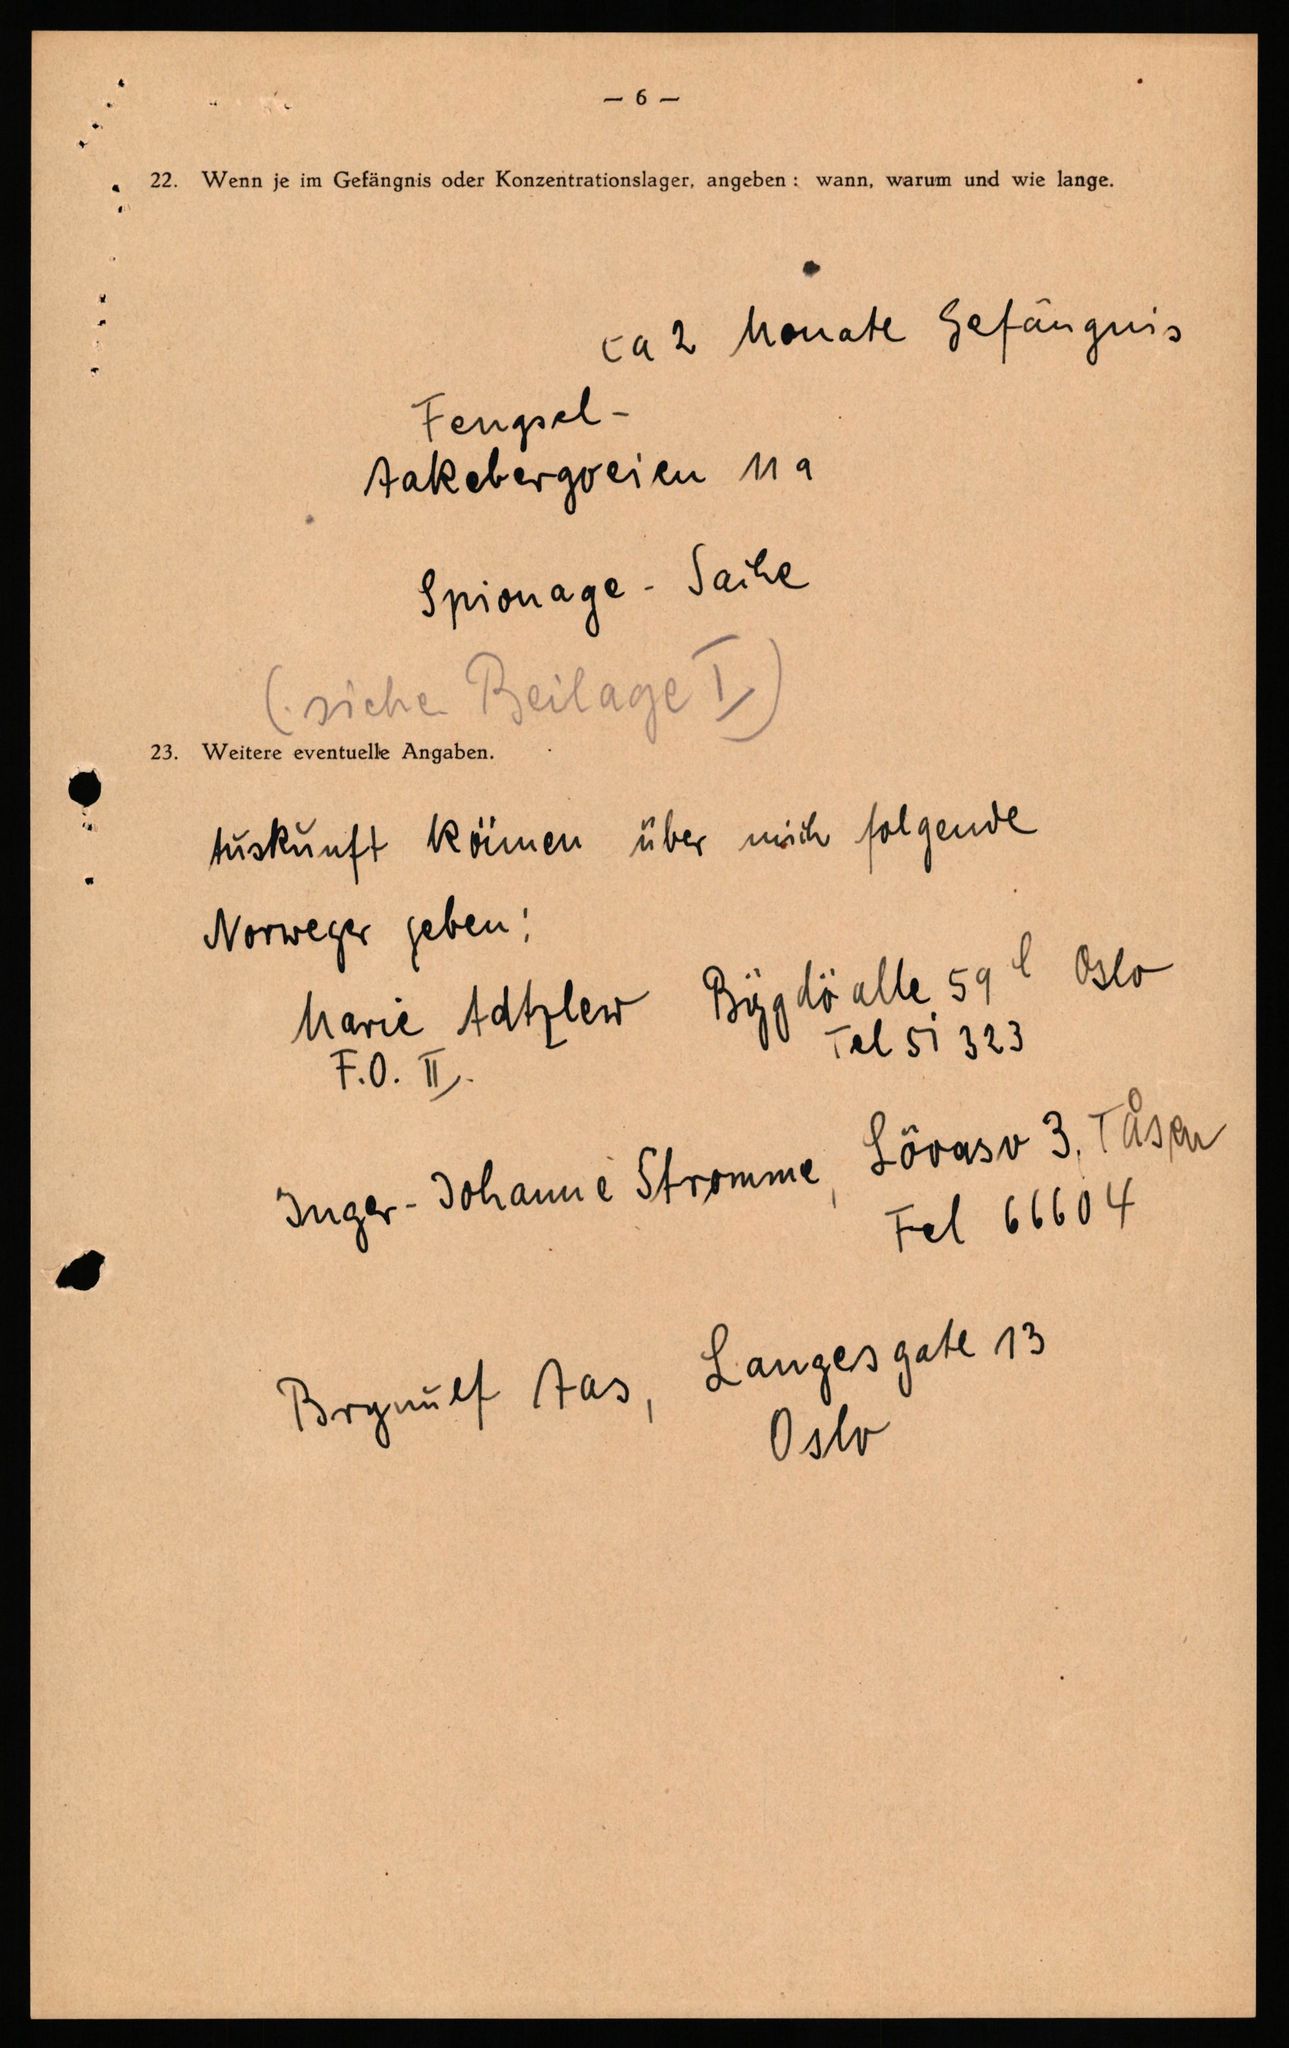 — 6 —
22. Wenn je im Gefängnis oder Konzentrationslager, angeben: wann, warum und wie lange.
ca 2 Monate Gefängnis
Fengsel-
Aakebergveien 11a
Spionage - Sache
(siehe Beilage I)
23. Weitere eventuelle Angaben.
Auskunft können über mich folgende
Norweger geben:
Marie Bygdö alle 59 Oslo
F.O. II. Tel 51 323
Inger-Johanne Stromme, Lövasv 3, Tåsen
Tel 66604
Brynulf Aas, Langesgate 13
Oslo